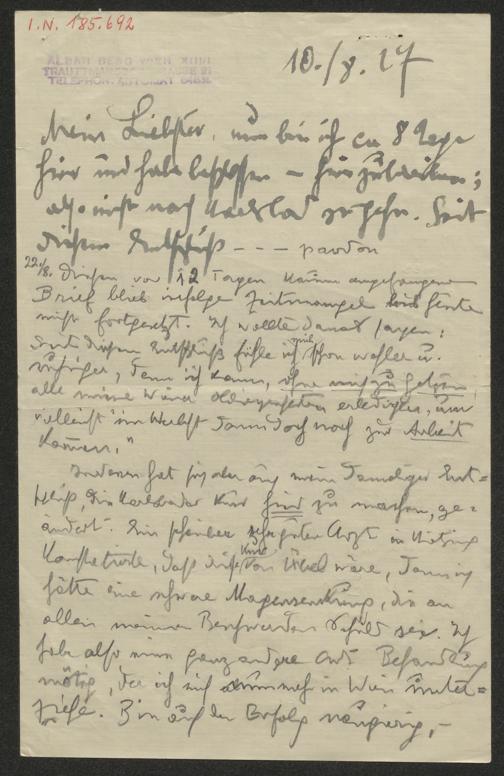 I.N. 185.692
ALBAN BERG WIEN XIII/1
TRAUTTMANSDORFFGASSE 27
TELEPHON: AUTOMAT
10./8. 27
Mein Liebster, nun bin ich ca 8 Tage
hier und habe beschlossen – hierzubleiben;
also nicht nach Karlsbad zu gehn. Seit
diesem Entschluß – – – pardon
22./8. Diesen vor 12 Tagen kaum angefangenen
Brief blieb infolge Zeitmangel bis heute
nicht fortgesetzt. Ich wollte damals sagen:
Seit diesem Entschluß fühle ich mich schon wohler u.
ruhiger, denn ich kann, ohne mich zu hetzen,
alle meine Wiener erledigen, um
vielleicht im Herbst dann doch noch zur Arbeit
kommen."
Indessen hat sich aber auch mein damaliger Ent=
schluß, die Karlsbader Kur hier zu machen, ge=
ändert. Ein scheinbar sehr guter Arzt in Hietzing
konstatierte, daß diese Kur von Übel wäre, denn ich
hätte eine schwere Magensenkung, die an
allen meinen Beschwerden schuld sei. Ich
habe also eine ganz andere Art Behandlung
nötig, der ich mich nunmeh in Wien unter=
ziehe. Bin auf den Erfolg neugierig, –